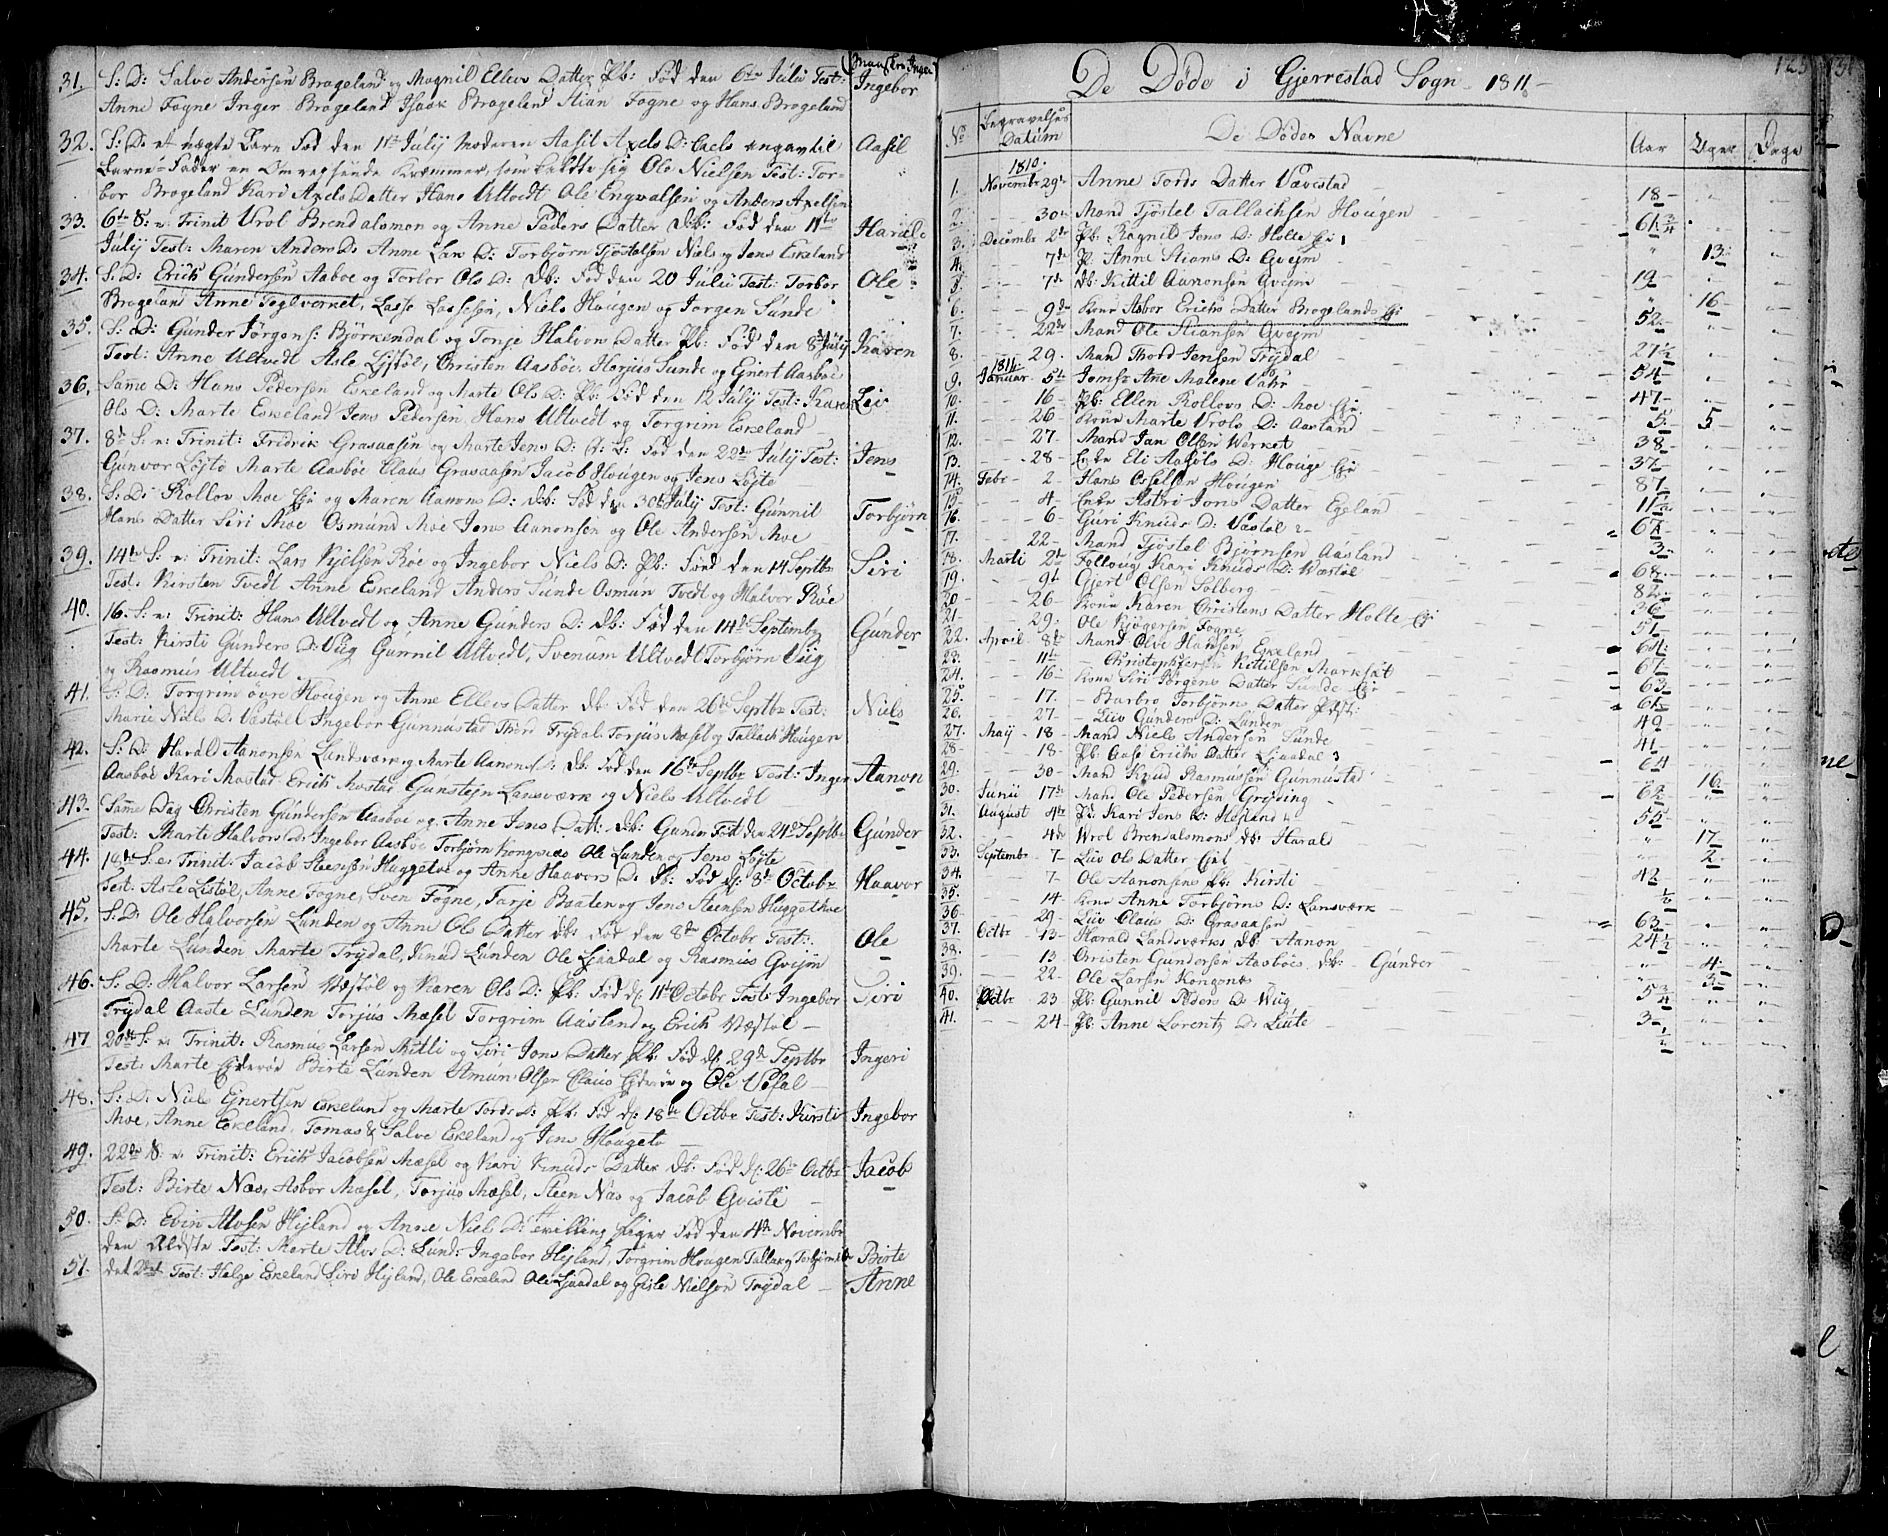 31. S: D: Salve Andersen Brogeland og Magnil Ellevs Datter Pb: Fød den 6te Julii Test:
Ingebor
Anne Fogne Inger Brogeland Isaak Brogeland Stian Fogne og Hans Brogeland
32. S: D: et uægte Barn Fød den 11te Julÿ Moderen Aasil Axels D: angav til
Aasil
Barne-Fader en Omreisende Kræmmer, som kaldte sig Ole Nielsen Test: Tor-
bor Brogeland Kari Axels Datter Hans Ultvedt Ole Engvalsen og Anders Axelsen
33. 6te S: v: Trinit Wrol Brendalsmon og Anne Peders Datter Db: Fød den 11te
Harald
Julÿ Test: Maren Anders D: Anne Lan D: Torbjørn Tjostolsen Niels og Jens Eskeland
34. S: D: Erich Gundersen Aaboe og Torbor Ols D: Db: Fød den 20 Julii Test: Torbor
Ole
Brogeland Anne Teglverket, Lasse Lassesøn, Niels Hougen og Jørgen Sunde
35. S: D: Gunder Jørgens: Bjørkendal og Tonje Halvors Datter Pb: Fød den 8de Julÿ
Karen
Test: Anne Ultvedt Asle Lystøl, Christen Aasboe, Horjus Sunde og Gjert Aasboe
36. Samme D: Hans Pedersen Eskeland og Marte Ols D: Pb: Fød den 12 Julÿ Test: Karen
Liv
Ols D: Marte Eskeland Jens Pedersen Hans Ultvedt og Torgrim Eskeland
37. 8de S: v: Trinit: Fredrik Grasaasen og Marte Jens D: Fød den 22de Julÿ Test:
Jens
Gunvor Løjte Marte Aasboe Claus Grasaasen Jacob Hougen og Jens Løjte
38. S: D: Rollov Moe Ejer og Maren Aanons D: Db: Fød den 30te Julÿ Test: Gunnil
Torbjørn
Hans Datter Siri Moe Osmund Moe Jens Aanonsen og Ole Andersen Moe
39. 14te S: v: Trinit: Lars Kjelsen Røe og Ingebor Niels D: Pb: Fød den 14 Septbr
Siri
Test: Kersten Tvedt Anne Eskeland Anders Sunde Osmun Tvedt og Halvor Røe
40. 16. S: v: Trinit: Hans Ultvedt og Anne Gunders D: Db: Fød den 14de Septemb:
Gunder
Test: Kirsti Gunders D: Viig Gunnil Ultvedt, Svenum Ultvedt Torbjørn Viig
og Rasmus Ultvedt
41. S: D: Torgrim øvre Hougen og Anne Ellevs Datter Db: Fød den 26de Septbr Test:
Niels
Marie Niels D: Væstøl Ingebor Gunnustad Thord Trydal Torjus Mæsel og Tallach Hougen
42. S: D: Harald Aanonsen Landsværk og Marte Aanons D: Db: Fød den 16de Septbr Test: Inger
Aanon
Aasboe Kari Mostad Erich Mostad Gunstejn Lansværk og Niels Ultvedt
43. Samme Dag Christen Gundersen Aasboe og Anne Jens Datt: Db: Gunder Fød den 24de Septbr
Gunder
Test: Marte Halvors D: Ingebor Aasboe Torbjørn Kongsnes Ole Lunden og Jens Løjte
44. 18de S: e: Trinit: Jacob Steensen Huggetoe og Anne Haavors D: Db: Fød d: 8de Octobr
Haavor
Test: Asle Listøl, Anne Fogne, Sven Fogne, Tarje Braaten og Jens Steensen Huggethoe
45. S: D: Ole Halvorsen Lunden og Anne Ols Datter Db: Fød den 8de Octobr Test:
Ole
Marte Lunden Marte Trydal, Knud Lunden Ole Ljaadal og Rasmus Gvejm
46. S: D: Halvor Larsen Wæstøl og Karen Ols D: Pb: Fød d: 11te Octobr Test: Ingebor
Siri
Trydal Aaste Lunden Torjus Mæsel Torgrim Aasland og Erich Væstøl
47 20de S: v: Trinit: Rasmus Larsen Mitli og Siri Jens Datter Pb: Fød d: 29de Septbr
Ingeri
Test: Marte Ejderød Birte Lunden Osmun Olsen Claus Ejderød og Ole Vefal
48. S: D: Niels Ejnertsen Eskeland og Marte Tords D: Pb: Fød d: 18de Octbr Test: Kirsti
Ingebor
Moe, Anne Eskeland, Tomas & Salve Eskeland og Jens Hougeto
49. 22de S: v: Trinit: Erich Jacobsen Mæsel og Kari Knuds Datter Db: Fød d: 26de Octbr
Jacob
Test: Birte Næs, Asbor Mæsel, Torjus Mæsel, Steen Næs og Jacob Gviste
50. S: D: Evin Alvsen Hejland og Anne Niels D: tvilling Piger Fød den 4de Novembr
den Ældste Test: Marte Alvs D: Lund: Ingebor Hejland, Torgrim Hougen Tallak
Birte
51. den 2den Test: Helge Eskeland Siri Hejland, Ole Eskeland Ole Ljaadal og Gisle Nielsen Trydal
Anne
De Døde i Gjerrestad Sogn 1811
125
No Begravelses Datum De Dødes Navne Aar Uger Dage
1810.
1. Novembr 29de Anne Tords Datter Vævestad 18
2. 30te Mand Tjøstel Tallachsen Hougen 61 3/4
3. Decembr 2den Pb. Ragnild Jens D: Holte Eje 13
4. 7de P. Anne Stians D: Gvejm 19
5. 7de Db: Kittil Aanonsen Gvejm 16
6. 9de Kone Asbor Erichs Datter Brogeland Eje 52
7. 22de Mand Ole Stiansen Gvejm 27 1/2
8. 29. Mand Thord Jensen Trydal 54
1811.
9. Januar 5te Jomfr Ane Malene Vahr 47
10. 16 Pb: Ellen Rollovs D: Moe Eje 5 5
11. 26 Kone Marte Wrols D: Aasland 38
12. 27 Mand Jan Olsen Werket 37
13. 28 Enke Eli Aasols D: Houge Eje 87
14. Febr 2 Hans Hougen 11 1/2
15. 4 Enke Astri Jons Datter Egeland 67
16. 6 Guri Knuds D: Væstøl 3
17. 22 Mand Tjøstel Bjørnsen Aasland 68
18. Marti 2de Kari Knuds D: Wæstøl 82
19. 9de Gjert Olsen Solberg 36
20. 26 Kone Karen Christens Datter Holte Eje 51
21. 29. Ole Fogne 64
22. April 8de Mand Olve Hansen Eskeland 67
23. 11te Christopher Kittilsen Marksæt 63
24. 16 Kone Siri Jørgens Datter Sunde Eje 61
25. 17 Barbro Torbjørns Datter 49
26. 27 Liv Gunders D: Lunden 41
27. Maÿ 18 Mand Niels Andersen Sunde 64
28. 18 Pb. Aase Erichs Datter Ljaadal 16
29. 30 Mand Knud Rasmussen Gunnustad 62
30. Junii 17de Mand Ole Pedersen Gryting 55
31. August 4de Pb: Kari Jens D: Hejland 17
32. 4de Wrol Brendalsmons Db: Harald 2
33. Septembr 7 Liv Ols Datter 42
34. 7 Ole Aanonsens Pb: Kirsti 1/2
35. 14 Kone Anne Torbjørns D: Lansværk 63
36. 29 Liv Claus D: Grasaasen 24 1/2
37. Octbr 13 Harald Landsværks Db: Aanon 4
38. 13 Christen Gundersen Aasboes Db: Gunder 3
39. 22 Ole Larsen Kongsnes 5 3/4
40. Octbr 23 Pb: Gunnil Peders D: Wiig 3
41. 24 Pb: Anne Lorentz D: Liute 1/2